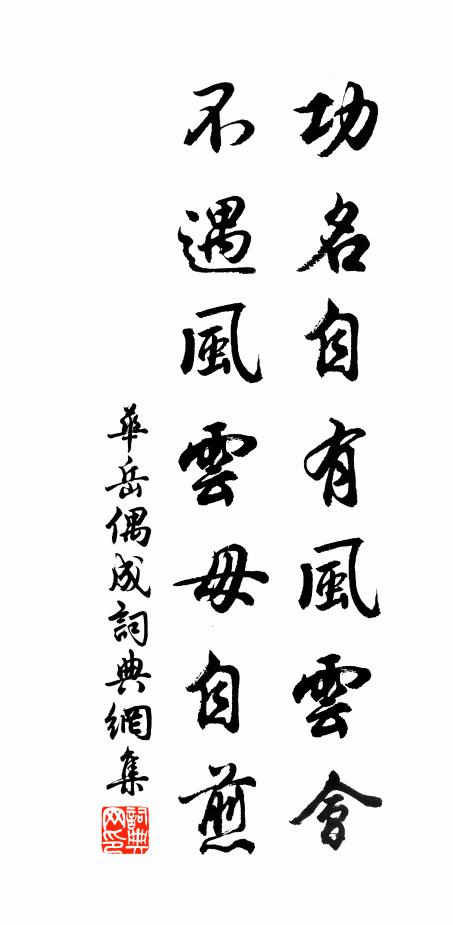 功名自有風雲會
不遇風雲毋自煎
華岳偶成詞典網集
詞典
网印